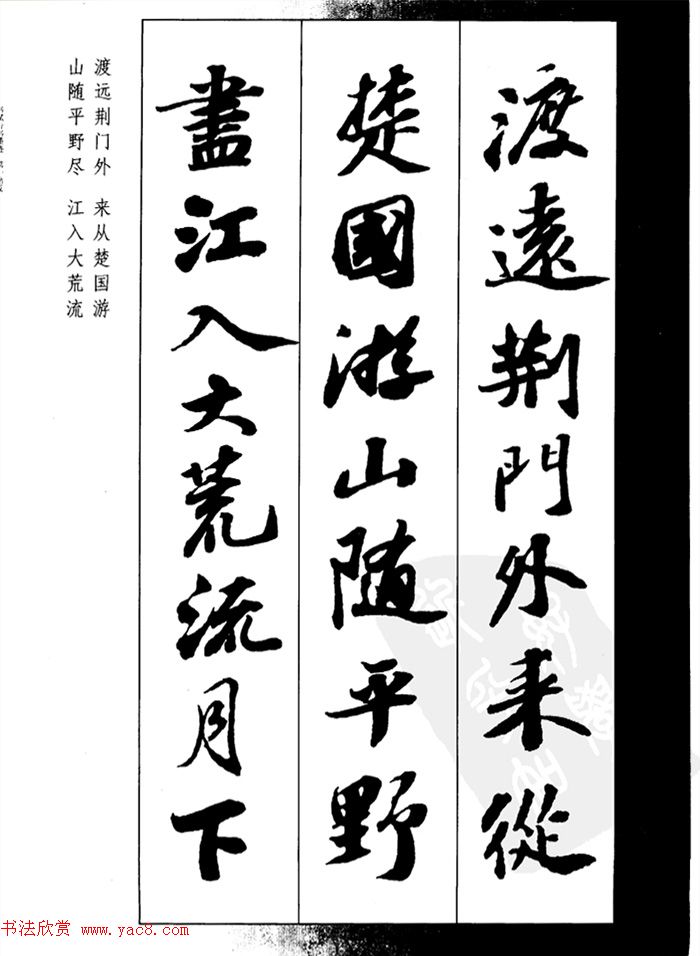 渡遠荆門外来從
楚國游山隨平野
盡江入大荒流月下
渡远荆门外 来从楚国游
山随平野尽 江入大荒流
书法欣赏 www.yac8.com